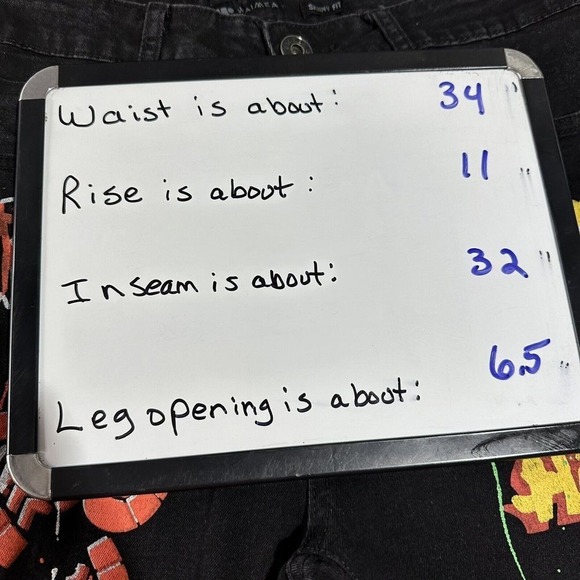 WAIMEA
SKINNY FIT
Waist is about: 34 "
Rise is about: 11 "
Inseam is about: 32 "
Leg opening is about: 6.5 "